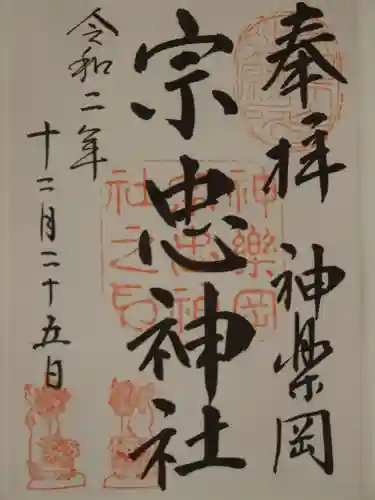 奉拝 神楽岡
宗忠神社
令和二年
十二月二十五日
神樂岡
宗忠神
社之印